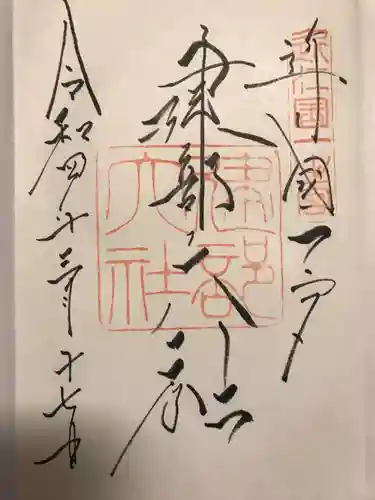 近江國一宮
建部大社
令和四年十二月十七日
近江國一宮
建部大社